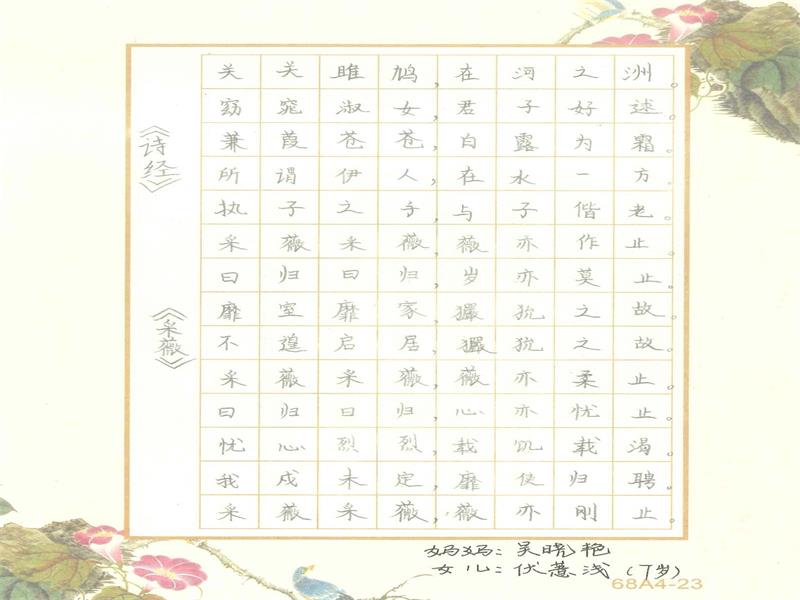 《诗经》
《采薇》
关关雎鸠,在河之洲。
窈窕淑女,君子好逑。
蒹葭苍苍,白露为霜。
所谓伊人,在水一方。
执子之手,与子偕老。
采薇采薇,薇亦作止。
曰归曰归,岁亦莫止。
靡室靡家,玁狁之故。
不遑启居,玁狁之故。
采薇采薇,薇亦柔止。
曰归曰归,心亦忧止。
忧心烈烈,载饥载渴。
我戍未定,靡使归聘。
采薇采薇,薇亦刚止。
妈妈:吴晓艳
女儿:伏薏浅(7岁)
68A4-23